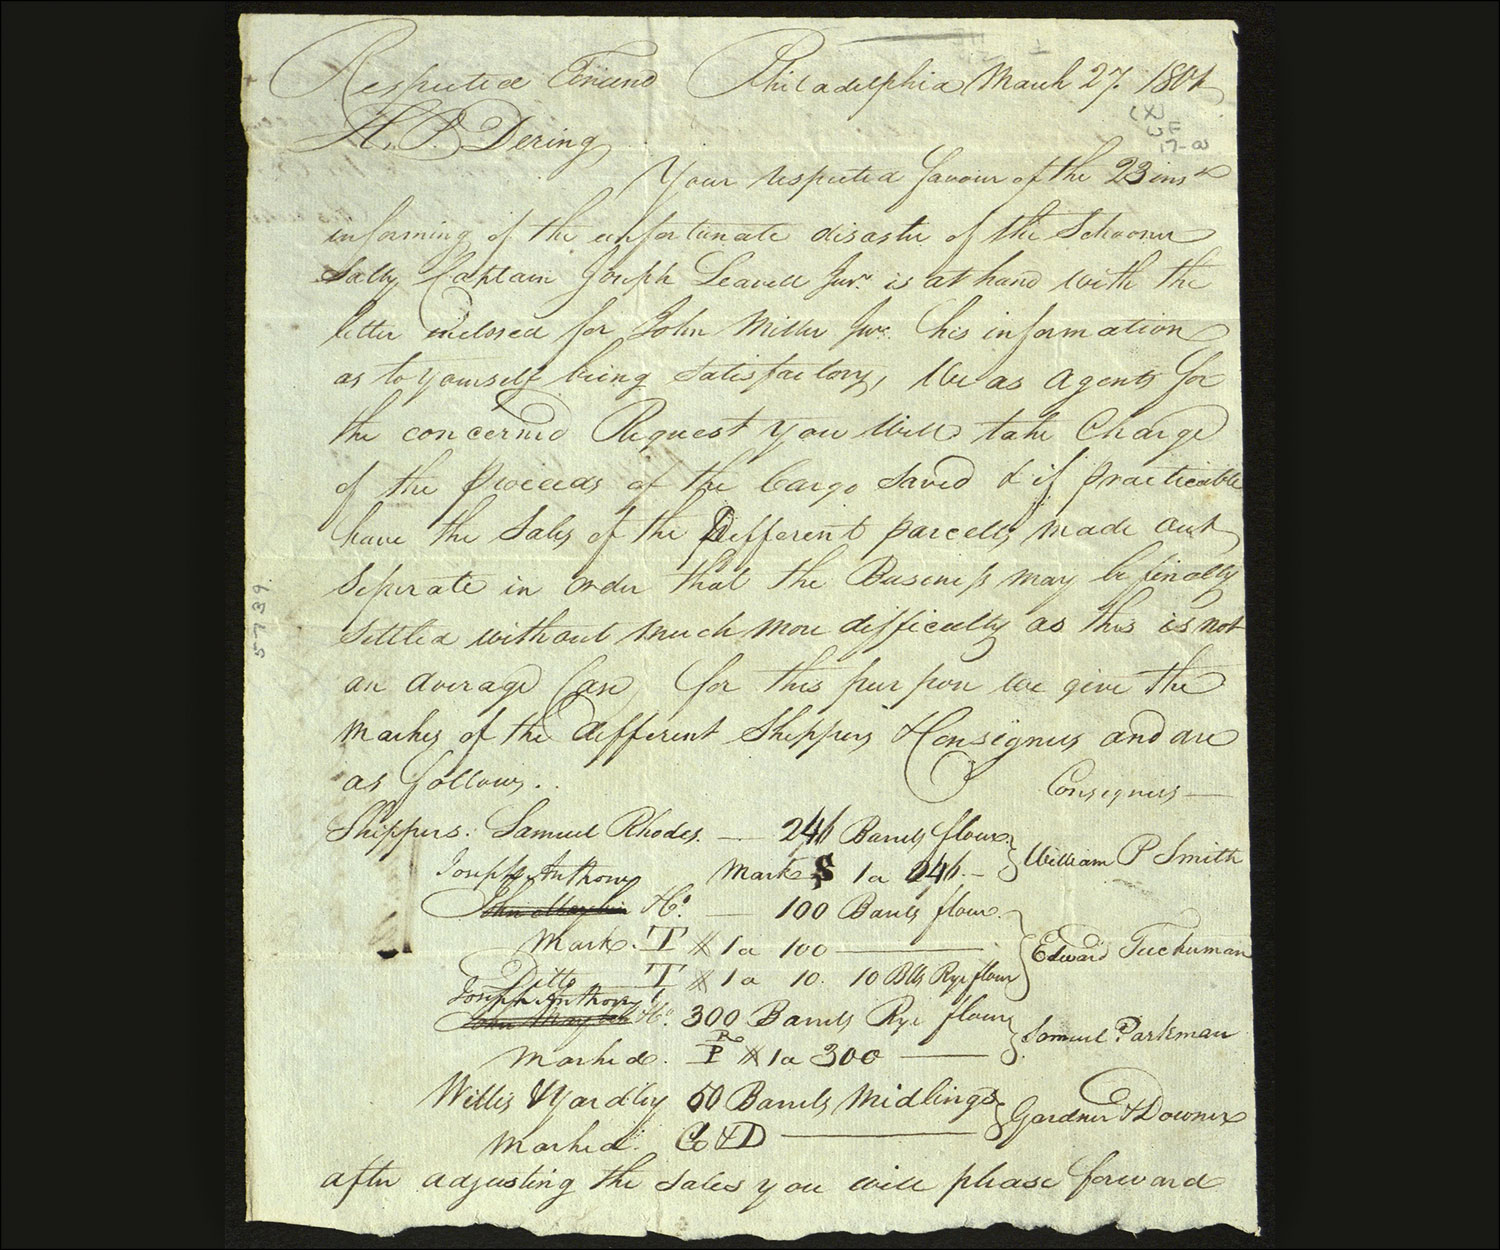 Respected Friend Philadelphia March 27. 1804
(X)
WF
17-a
H. P. Dering
Your respected favour of the 23 inst
informing of the unfortunate disaster of the Schooner
Sally Captain Joseph Leavett Junr. is at hand with the
letter inclosed for John Miller Junr. his information
as to yourself being satisfactory, We as Agents for
the concerned Request you Will take Charge
of the proceeds of the Cargo saved & if practicable
have the Sales of the Different parcells made out
Seperate in order that the Business may be finally
settled without much more difficulty as this is not
an average Case, for this purpose we give the
Markes of the different Shippers & Consignees and are
as follows..
Consignees
Shippers. Samuel Rhodes. 246 Barrels flour
Mark S 1 a 246.
William P Smith
Joseph Anthony
& Co. 100 Barrels flour.
Mark. T # 1 a 100
Edward Tuckerman
Ditto T # 1 a 10. 10 Bbls Rye flour
Joseph Anthony
& Co. 300 Barrels Rye flour
Samuel Parkman
Marked. P # 1 a 300
Willis & Yardley 50 Barrels Midlings
Gardner & Downer
Marked. G & D
after adjusting the sales you will please forward
5739.